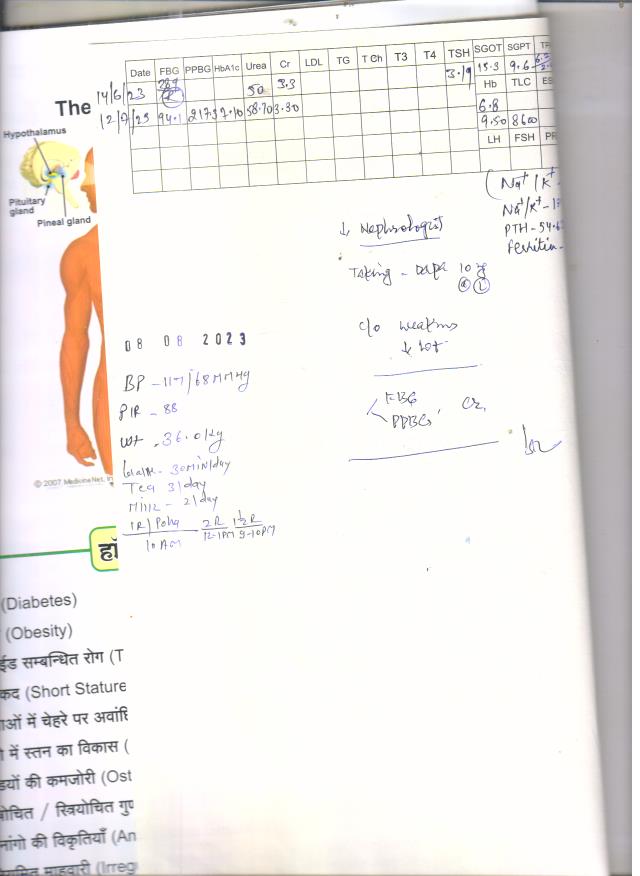 Date FBG PPBG HbA1c Urea Cr LDL TG T Ch T3 T4 TSH SGOT SGPT
14/6/23 289 R 50 3.3 3.19 15.3 9.6
Hb TLC ES
6.8
12/7/23 94.1 217.5 7.10 58.70 3.30 9.50 8600
LH FSH PR
The
Hypothalamus
Pituitary
gland
Pineal gland
(Na+/K+
Na+/K+ -
PTH - 54.6
Ferritin -
↓ Nephrologist
Taking - Dapa 10
c/o weakness
↓ wt
FBG
PPBG
Cr
08 08 2023
BP - 117/68 MMHg
P/R - 88
wt - 36.0 kg
Walk - 30 min/day
Tea 3/day
Milk - 2/day
1R/Poha 2R 1½R
10 AM 12-1PM 9-10PM
© 2007 MedicineNet, In
हॉ
(Diabetes)
(Obesity)
ईड सम्बन्धित रोग (T
कद (Short Stature
ाओं में चेहरे पर अवांछि
में स्तन का विकास (
डयों की कमजोरी (Ost
योचित / स्त्रियोचित गुण
नांगो की विकृतियाँ (An
यमित माहवारी (Irreg